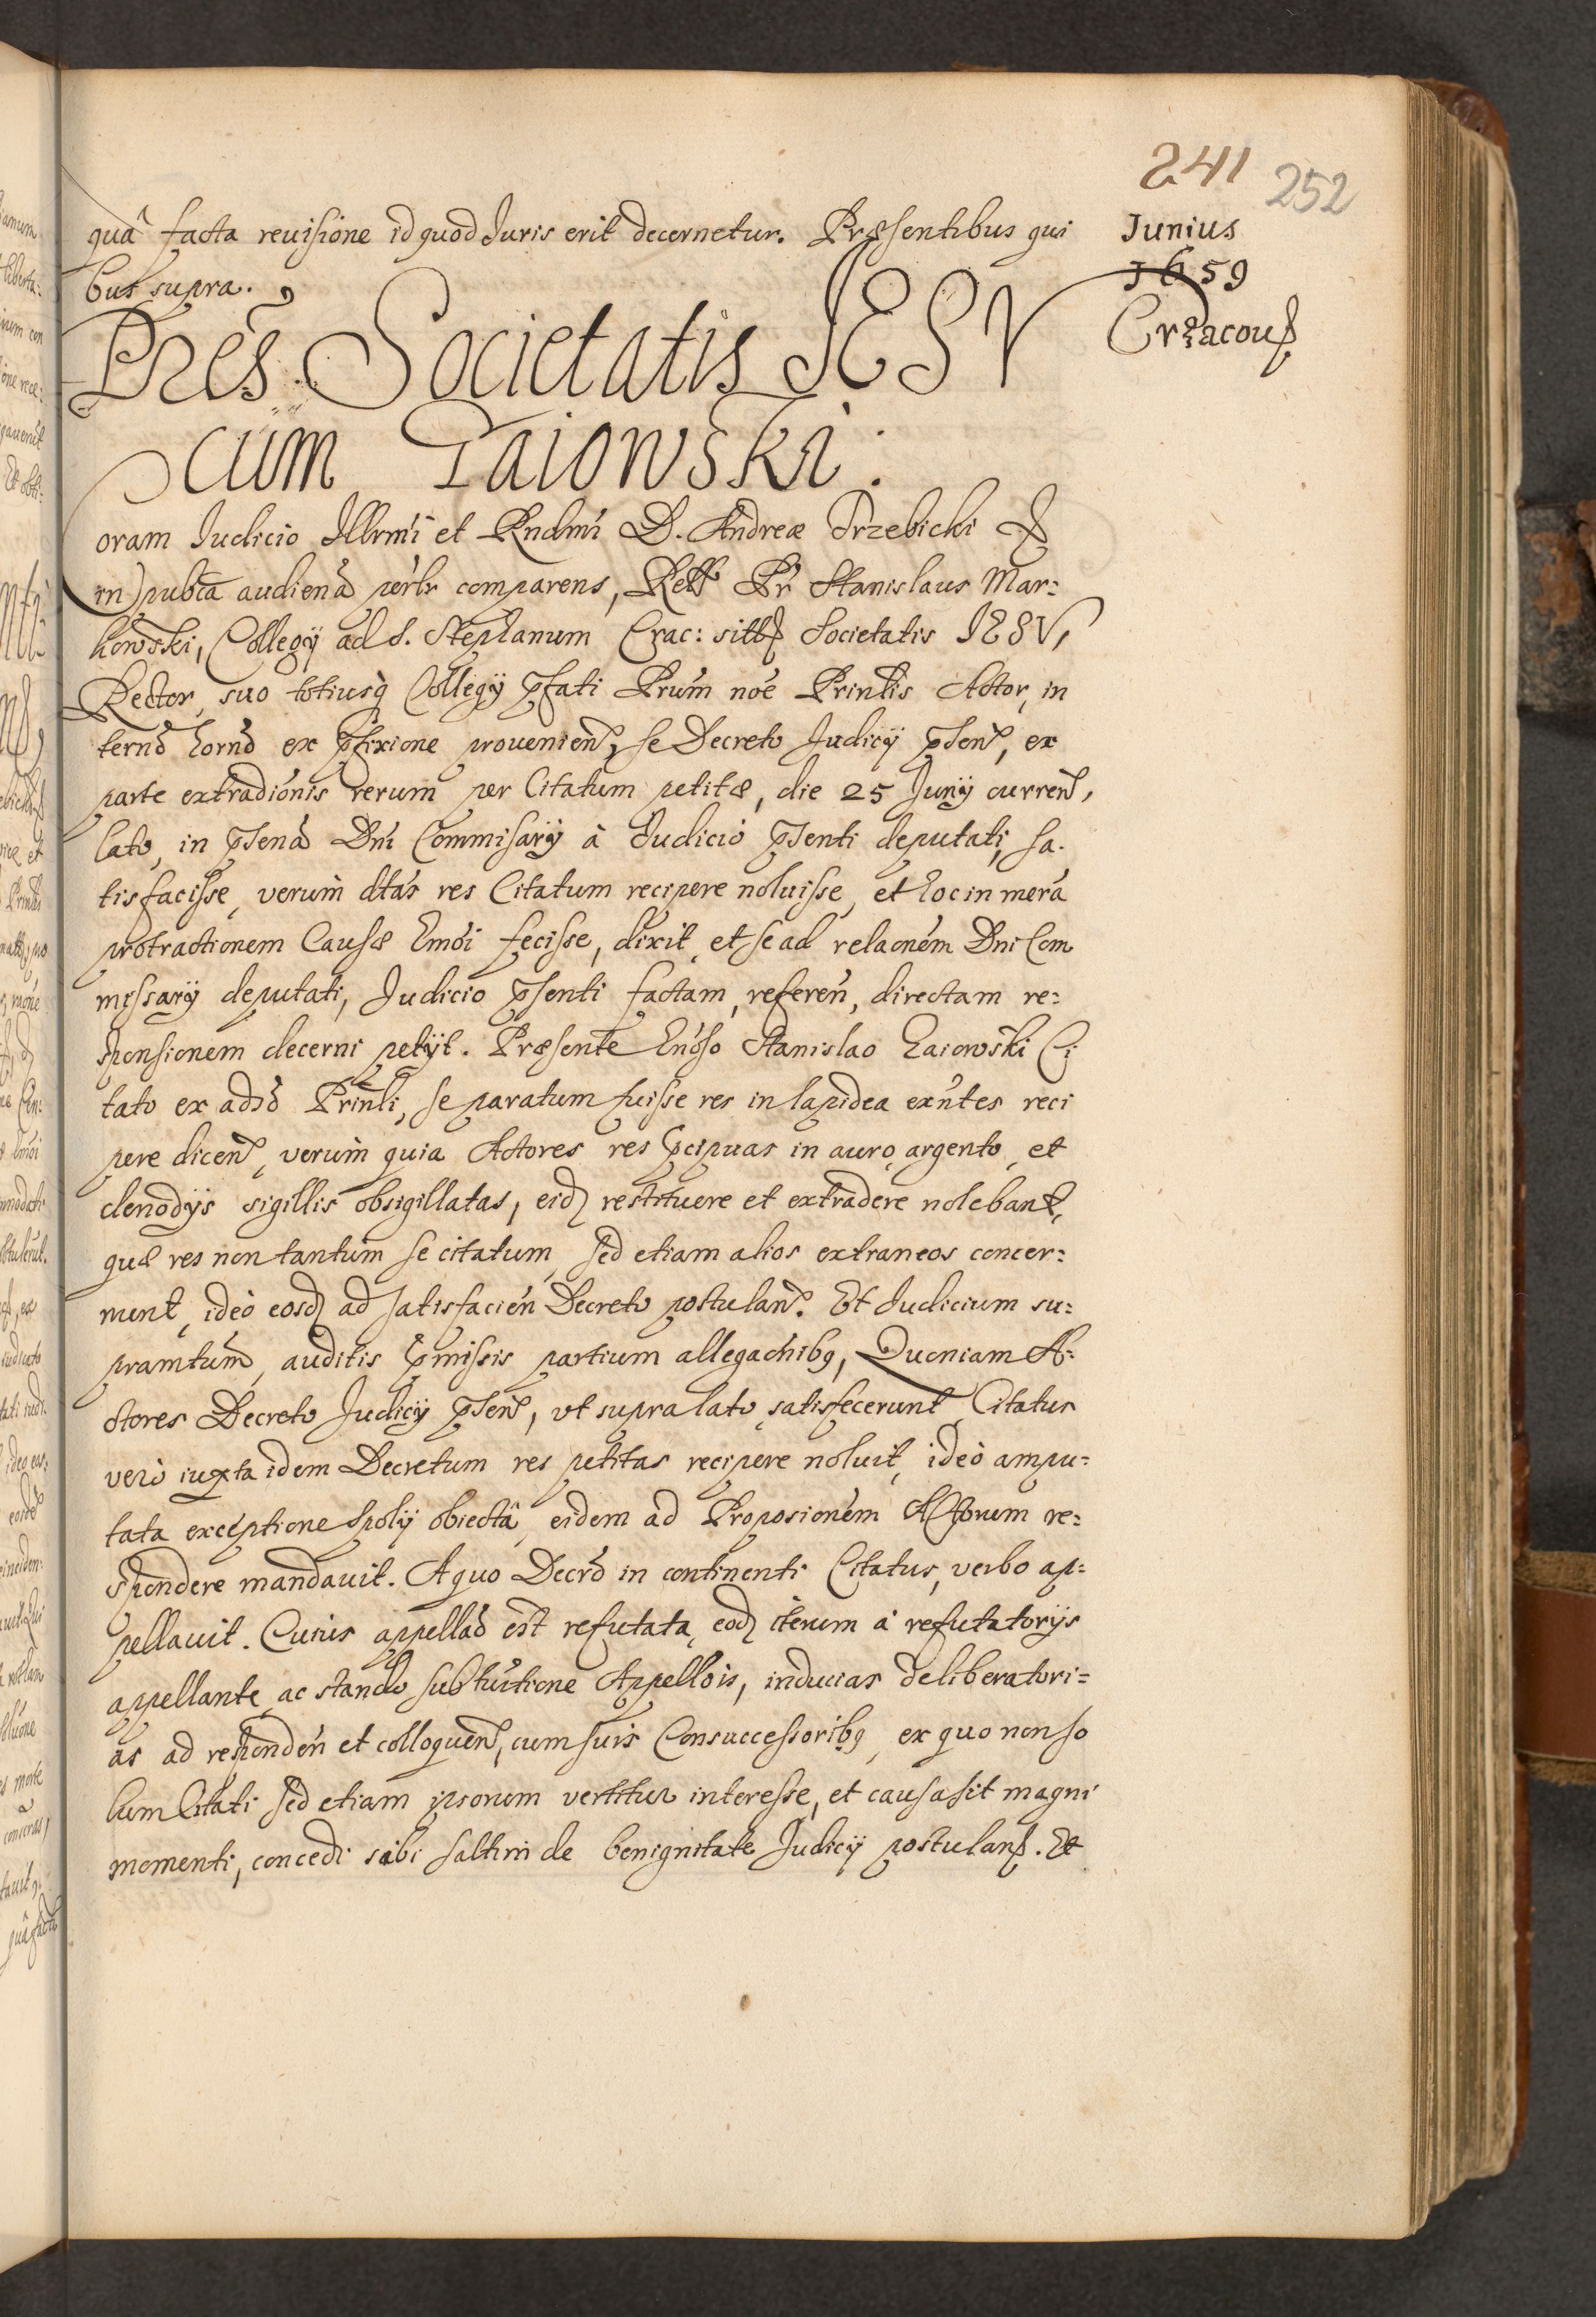 241 252
Junius
1659
Cracou
quâ facta reuisione id quod Iuris erit decernetur. Præsentibus qui
bus supra.
Pres Societatis IESV
cum Gaiowski.
Coram Iudicio Illrmi et Rndmi D. Andreæ Trzebicki
in pubca audiena perlr comparens, Rell Pr Stanislaus Mar:
kowski, Collegij ad S. Stephanum Crac: sitt Societatis IESV,
Rector, suo totiusq Collegij pfati Prum noe Printis Actor, in
termo horno ex pfixione prouenien, se Decreto Iudicij psen, ex
parte extradionis rerum per Citatum petitæ, die 25 Junij curren,
lato, in psena Dni Commisarij à Iudicio psenti deputati, sa.
tisfacisse, verum dtas res Citatum recipere noluisse, et hoc in mera
protractionem Causæ hmoi fecisse, dixit, et se ad relaonem Dni Com
missarij deputati, Iudicio psenti factam, referen, directam re:
sponsionem decerni petijt. Præsente hnoso Stanislao Gaiowski Ci
tato ex adso Prinli, se paratum fuisse res in lapidea exntes reci
pere dicen, verum quia Actores res pcipuas in auro, argento, et
clenodijs sigillis obsigillatas, eid restituere et extradere nolebant,
quæ res non tantum se citatum, sed etiam alios extraneos concer:
nunt, ideò eosd ad satisfacien Decreto postulan. Et Iudicium su:
pramtum, auditis pmissis partium allegaonibq, Quoniam A:
ctores Decreto Iudicij psen, vt supra lato satisfecerunt, Citatus
verò iuxta idem Decretum res petitas recipere noluit, ideò ampu:
tata exceptione spolij obiectâ, eidem ad Proposionem Actorum re:
spondere mandauit. A quo Decro in continenti Citatus, verbo ap:
pellauit. Cuius appellao est refutata, eod iterum à refutatorijs
appellante, ac stando sub tuitione Appellois, inducias deliberatori:
as ad responden et colloquen, cum suis Consuccessoribq, ex quo non so
lum Citati sed etiam ipsorum vertitur interesse, et causa sit magni
momenti, concedi sibi saltim de benignitate Iudicij postulan. Et